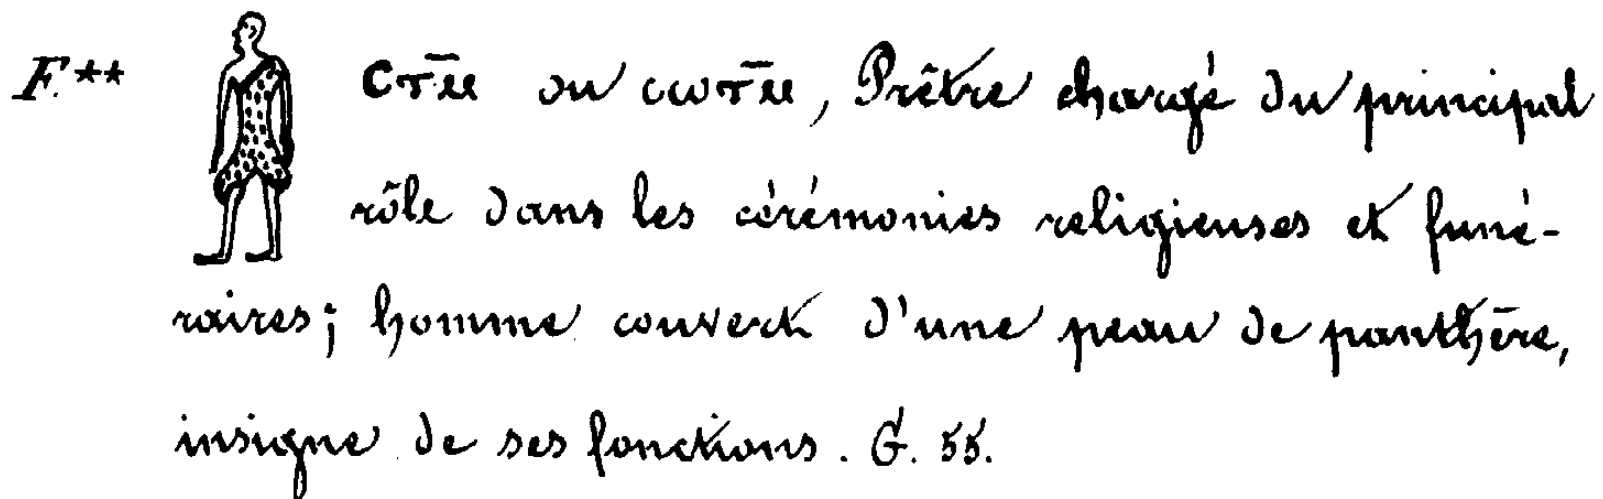 F.** Ⲥⲧ̄ⲙ ou ⲥⲱⲧ̄ⲙ, Prêtre chargé du principal
rôle dans les cérémonies religieuses et funé-
raires; homme couvert d'une peau de panthère,
insigne de ses fonctions. G. 55.